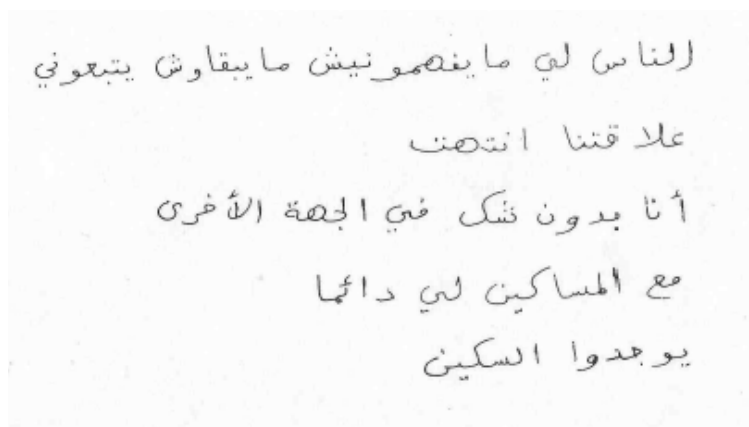 الناس لي مايفهمونيش مايبقاوش يتبعوني
علاقتنا انتهت
أنا بدون شك في الجهة الأخرى
مع المساكين لي دائما
يوجدوا السكين